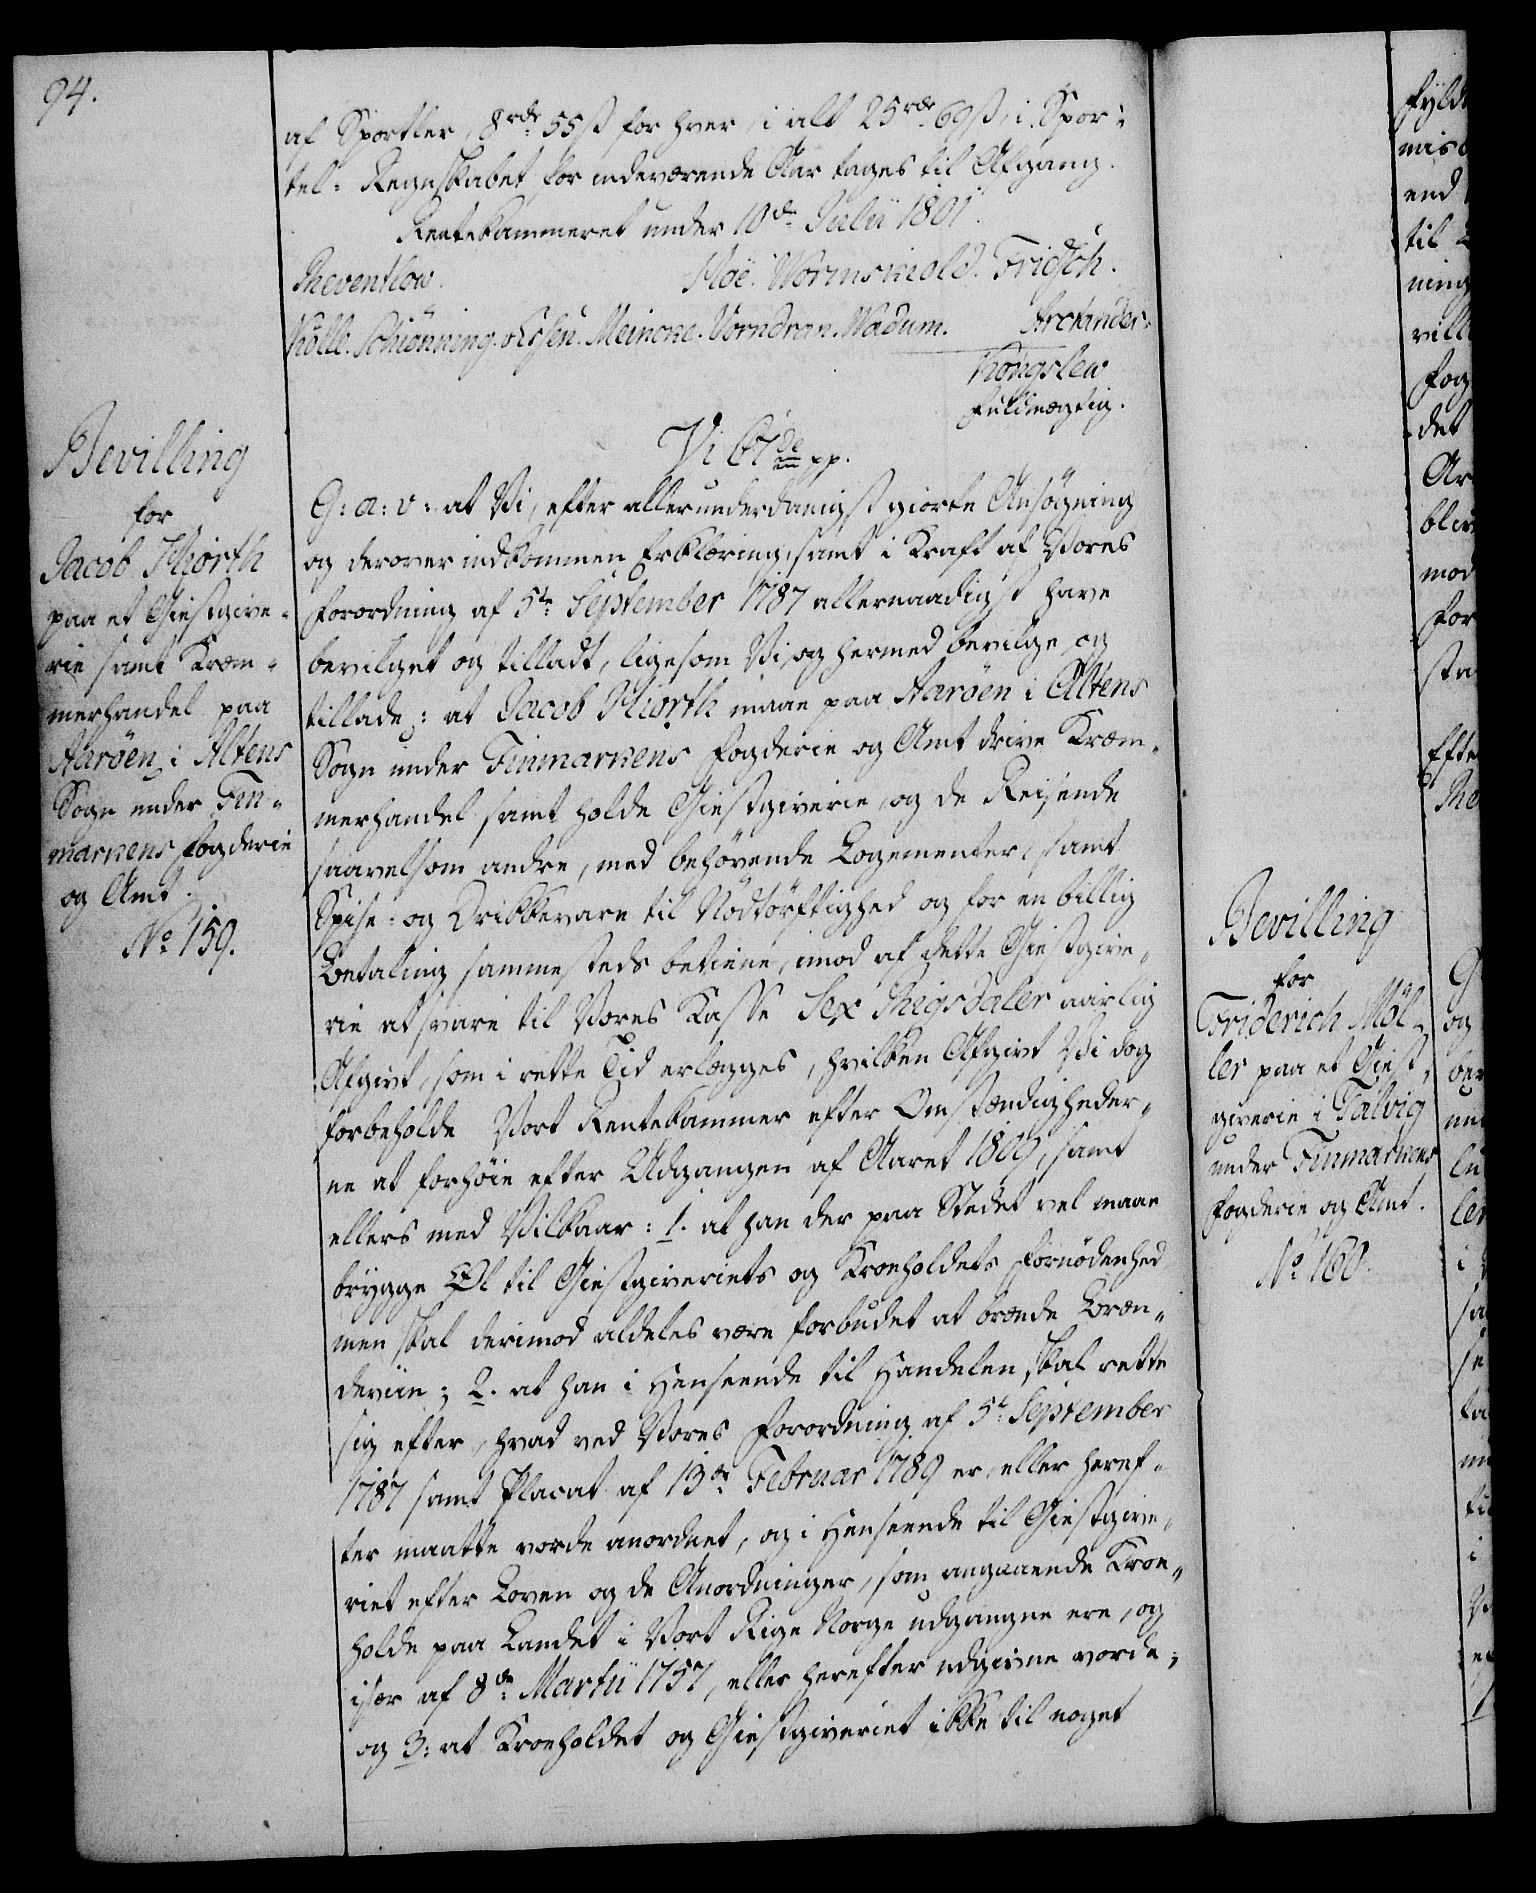 94.
af Sportler, 8 rdr 55 ß for hver, i alt 25 rdr 69 ß, i Spor-
tel-Regnskabet for indeværende Aar tages til Afgang.
Rentekammeret under 10de Julii 1801.
Reventlow. Hoë. Wormskiold. Fridsch.
Kölle. Schiönning. Essen. Meincke. Vorndran. Wadum. Arctander.
Kongslew
Fuldmægtig.
Bevilling
for
Jacob Hiorth
paa et Giestgive-
rie samt Kræm-
merhandel paa
Aaröen i Altens
Sogn under Fin-
markens Fogderie
og Amt.
No 159.
Vi C 7de pp.
G: a: v: at Vi, efter allerunderdanigst giorte Ansøgning
og derover indkommen Erklæring, samt i Kraft af Vores
Forordning af 5te September 1787 allernaadigst have
bevilget og tilladt, ligesom Vi og hermed bevilge og
tillade: at Jacob Hiorth maae paa Aaröen i Altens
Sogn under Finmarkens Fogderie og Amt drive Kræm-
merhandel samt holde Giestgiverie og de Reisende
saavelsom andre, med behøvende Logementer, samt
Spise- og Drikkevare til Nödtörftighed og for en billig
Betaling sammesteds betiene, imod af dette Giestgive-
rie at svare til Vores Kasse Sex Rigsdaler aarlig
Afgivt, som i rette Tid erlægges, hvilken Afgivt Vi dog
forbeholde Vort Rentekammer efter Omstændigheder-
ne at forhöie efter Udgangen af Aaret 1809, samt
ellers med Vilkaar: 1. at han der paa Stedet vel maae
brygge Øl til Giestgiveriets og Kroeholdets Fornödenhed
men skal derimod aldeles være forbudet at brænde Bræn-
deviin; 2. at han i Henseende til Handelen skal rette
sig efter, hvad ved Vores Forordning af 5te September
1787 samt Placat af 13de Februar 1789 er, eller heref-
ter maatte vorde anordnet, og i Henseende til Giestgive-
riet efter Loven og de Anordninger, som angaaende Kroe-
holde paa Landet i Vort Rige Norge udgangne ere, og
især af 8de Martii 1757, eller herefter udgivne vorde;
og 3: at Kroeholdet og Giestgiveriet ikke til noget
Bevilling
for
Friderich Møl-
ler paa et Giest-
giverie i Talvig
under Finmarkens
Fogderie og Amt.
No 160.